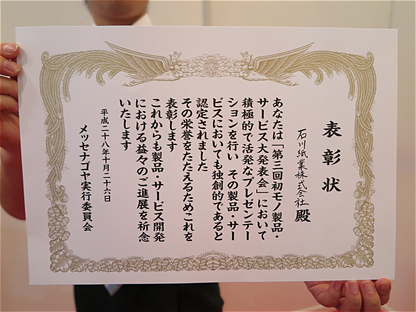 表彰状
石川紙業株式会社殿
あなたは「第三回初モノ製品・
サービス大発表会」において
積極的で活発なプレゼンテー
ションを行い その製品・サー
ビスにおいても独創的であると
認定されました
その栄誉をたたえるためこれを
表彰します
これからも製品・サービス開発
における益々のご進展を祈念
いたします
平成二十八年十月二十六日
メッセナゴヤ実行委員会